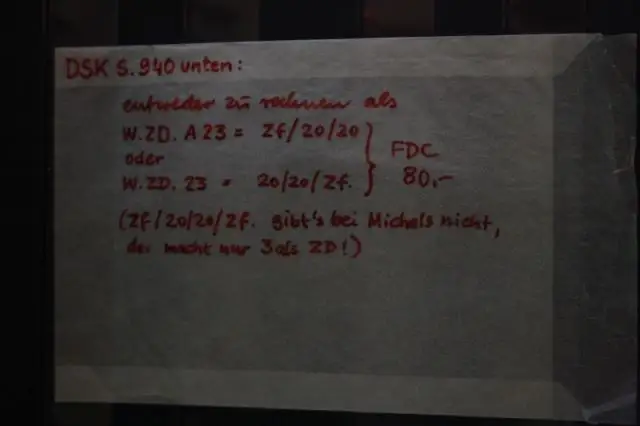 DSK S. 940 unten:
entweder zu rechnen als
W.ZD. A 23 = Zf/20/20
oder
W.ZD. 23 = 20/20/Zf.
FDC
80.-
(Zf/20/20/Zf. gibt's bei Michels nicht,
der macht nur 3 als ZD!)